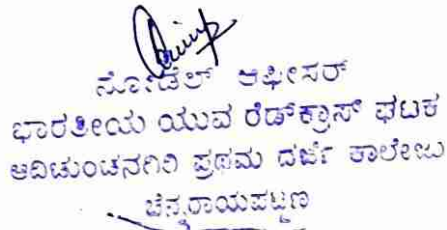 ನೋಡೆಲ್ ಆಫೀಸರ್
ಭಾರತೀಯ ಯುವ ರೆಡ್‌ಕ್ರಾಸ್ ಘಟಕ
ಆದಿಚುಂಚನಗಿರಿ ಪ್ರಥಮ ದರ್ಜೆ ಕಾಲೇಜು
ಚೆನ್ನರಾಯಪಟ್ಟಣ